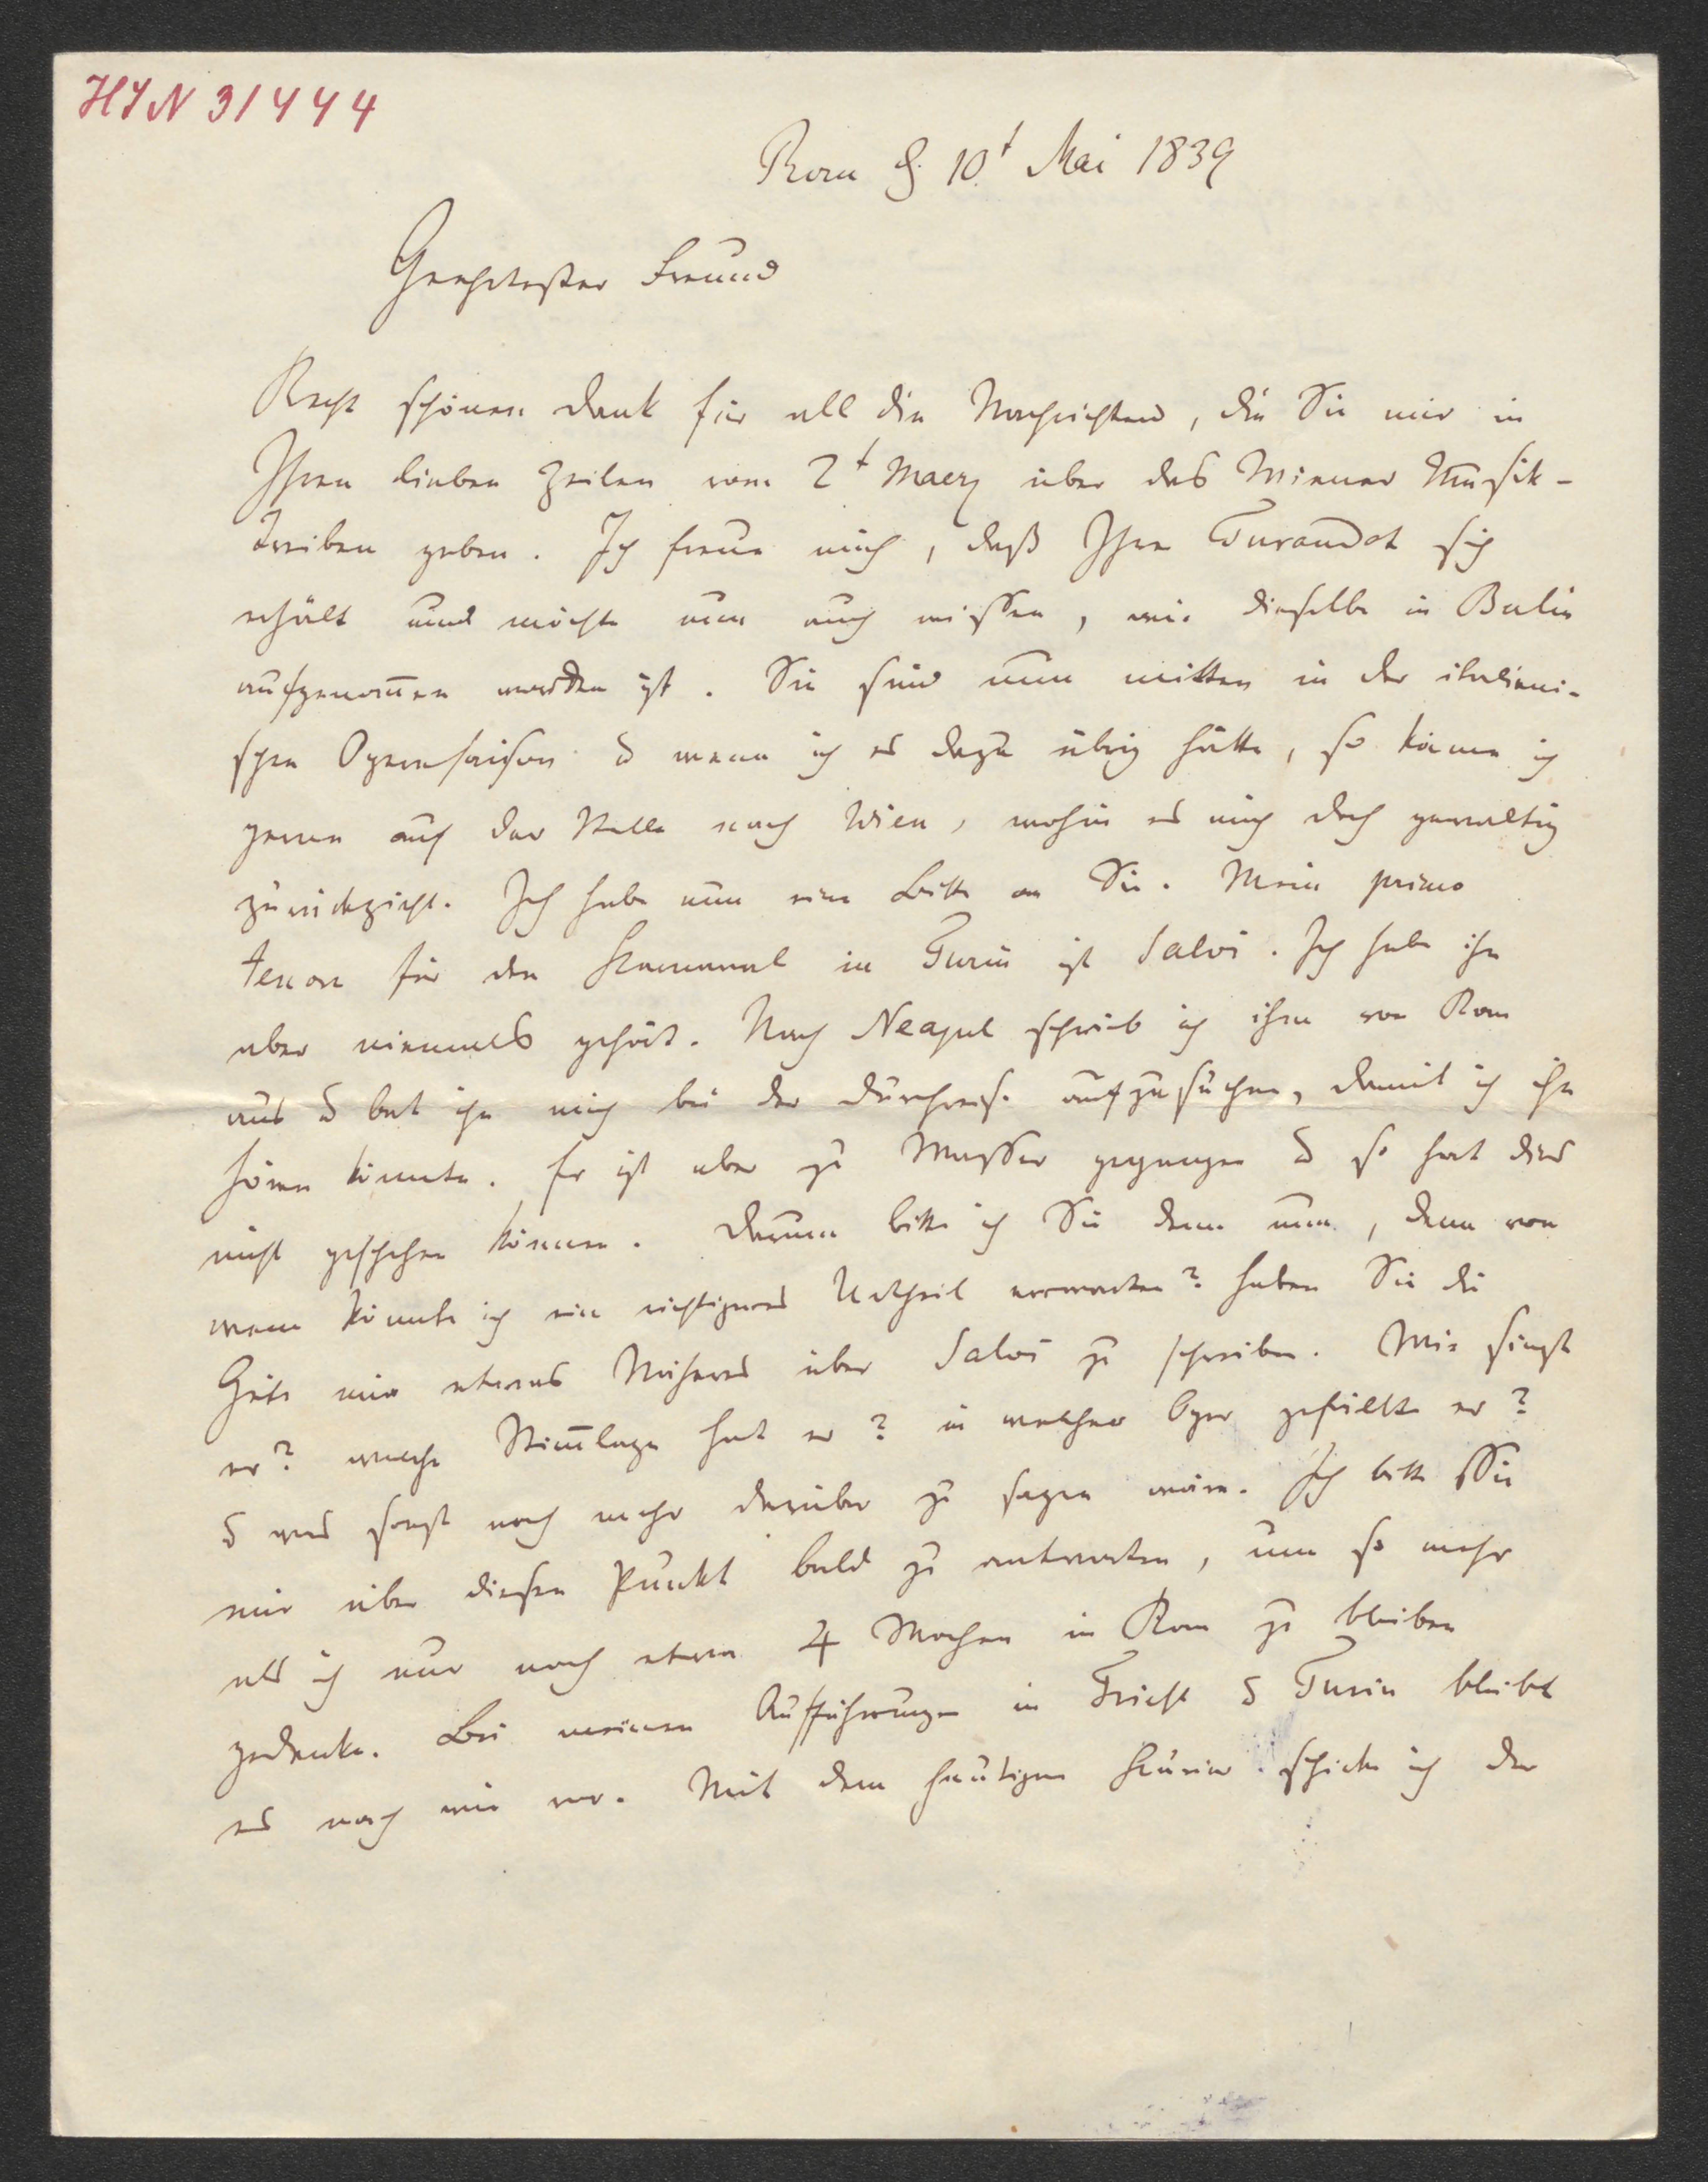 HIN 31444
Rom d. 10t Mai 1839
Geehrtester Freund
Recht schönen Dank für all die Nachrichten, die Sie mir in
Ihren lieben Zeilen vom 2t Maerz über das Wiener Musik-
treiben geben. Ich freue mich, daß Ihre Turandot sich
erhält und möchte nun auch wissen, wie dieselbe in Berlin
aufgenom̄en worden ist. Sie sind nun mitten in der italieni-
schen Opernsaison & wenn ich es dazu übrig hätte, so käme ich
gerne auf der Stelle nach Wien, wohin es mich doch gewaltig
zurückzieht. Ich habe nun eine Bitte an Sie. Mein primo
tenore für den Karneval in Turin ist Salvi. Ich habe ihn
aber niemals gehört. Nach Neapel schrieb ich ihm von Rom
aus & bat ihn mich bei der Durchreise aufzusuchen, damit ich ihn
hören könnte. Er ist aber zu Wasser gegangen & so hat dies
nicht geschehen können. Darum bitte ich Sie denn nun, denn von
wem könnte ich ein richtigeres Urtheil erwarten? haben Sie die
Güte mir etwas Näheres über Salvi zu schreiben. Wie singt
er? welche Stim̄lage hat er? in welcher Oper gefällt er?
& was sonst noch mehr darüber zu sagen wäre. Ich bitte Sie
mir über diesen Punkt bald zu antworten, um so mehr
als ich nur noch etwa 4 Wochen in Rom zu bleiben
gedenke. Bei meinen Aufführungen in Triest & Turin bleibt
es nach wie vor. Mit dem heutigen Kurier schicke ich der